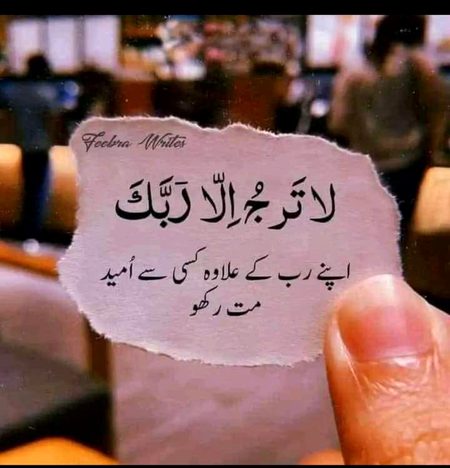 Feebra Writes
لا تَرجُ اِلّا رَبَّكَ
اپنے رب کے علاوہ کسی سے اُمید
مت رکھو